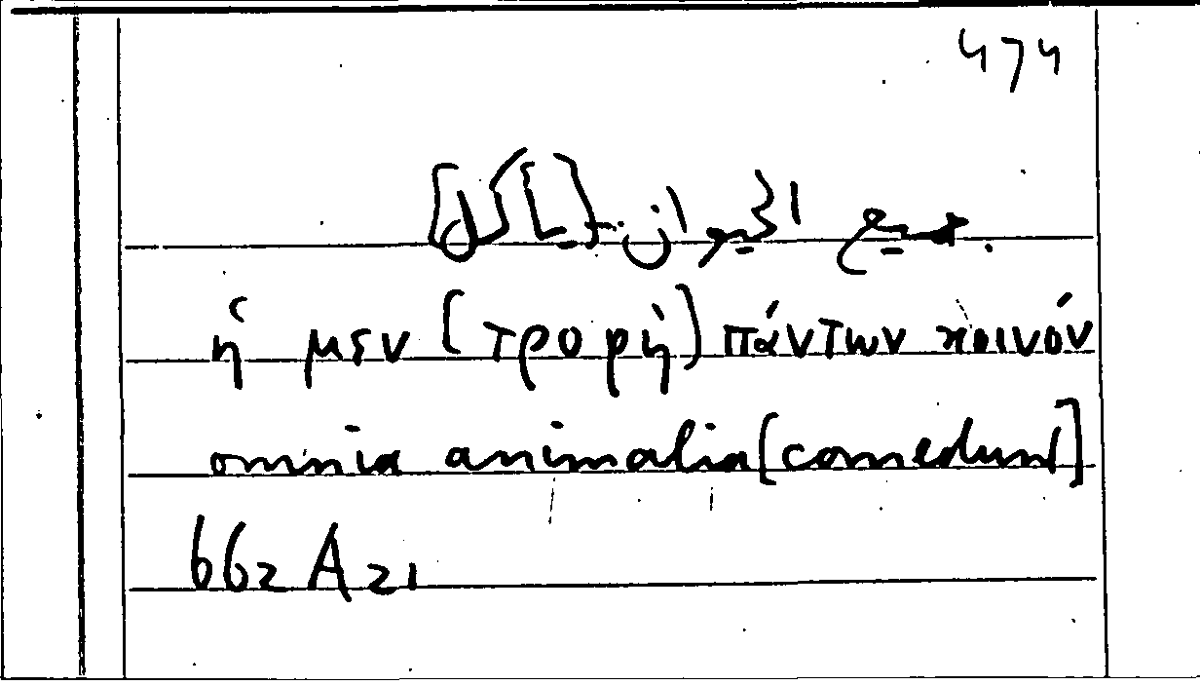 474
جميع الحيوان [يأكل]
ἡ μεν (τροφή) πάντων κοινόν
omnia animalia [comedunt]
662 A 21